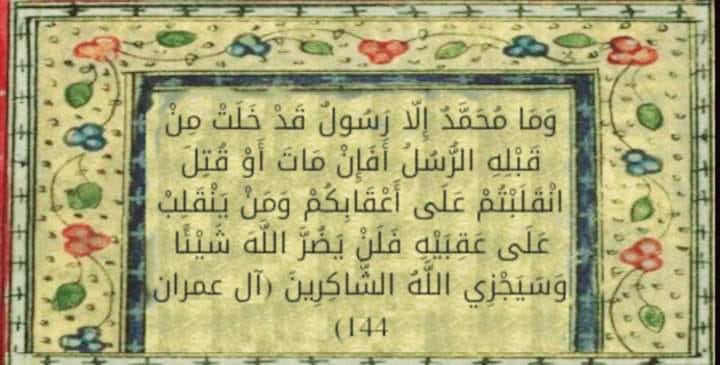 وَمَا مُحَمَّدٌ إِلَّا رَسُولٌ قَدْ خَلَتْ مِنْ
قَبْلِهِ الرُّسُلُ أَفَإِنْ مَاتَ أَوْ قُتِلَ
انْقَلَبْتُمْ عَلَى أَعْقَابِكُمْ وَمَنْ يَنْقَلِبْ
عَلَى عَقِبَيْهِ فَلَنْ يَضُرَّ اللَّهَ شَيْئًا
وَسَيَجْزِي اللَّهُ الشَّاكِرِينَ (آل عمران
144)